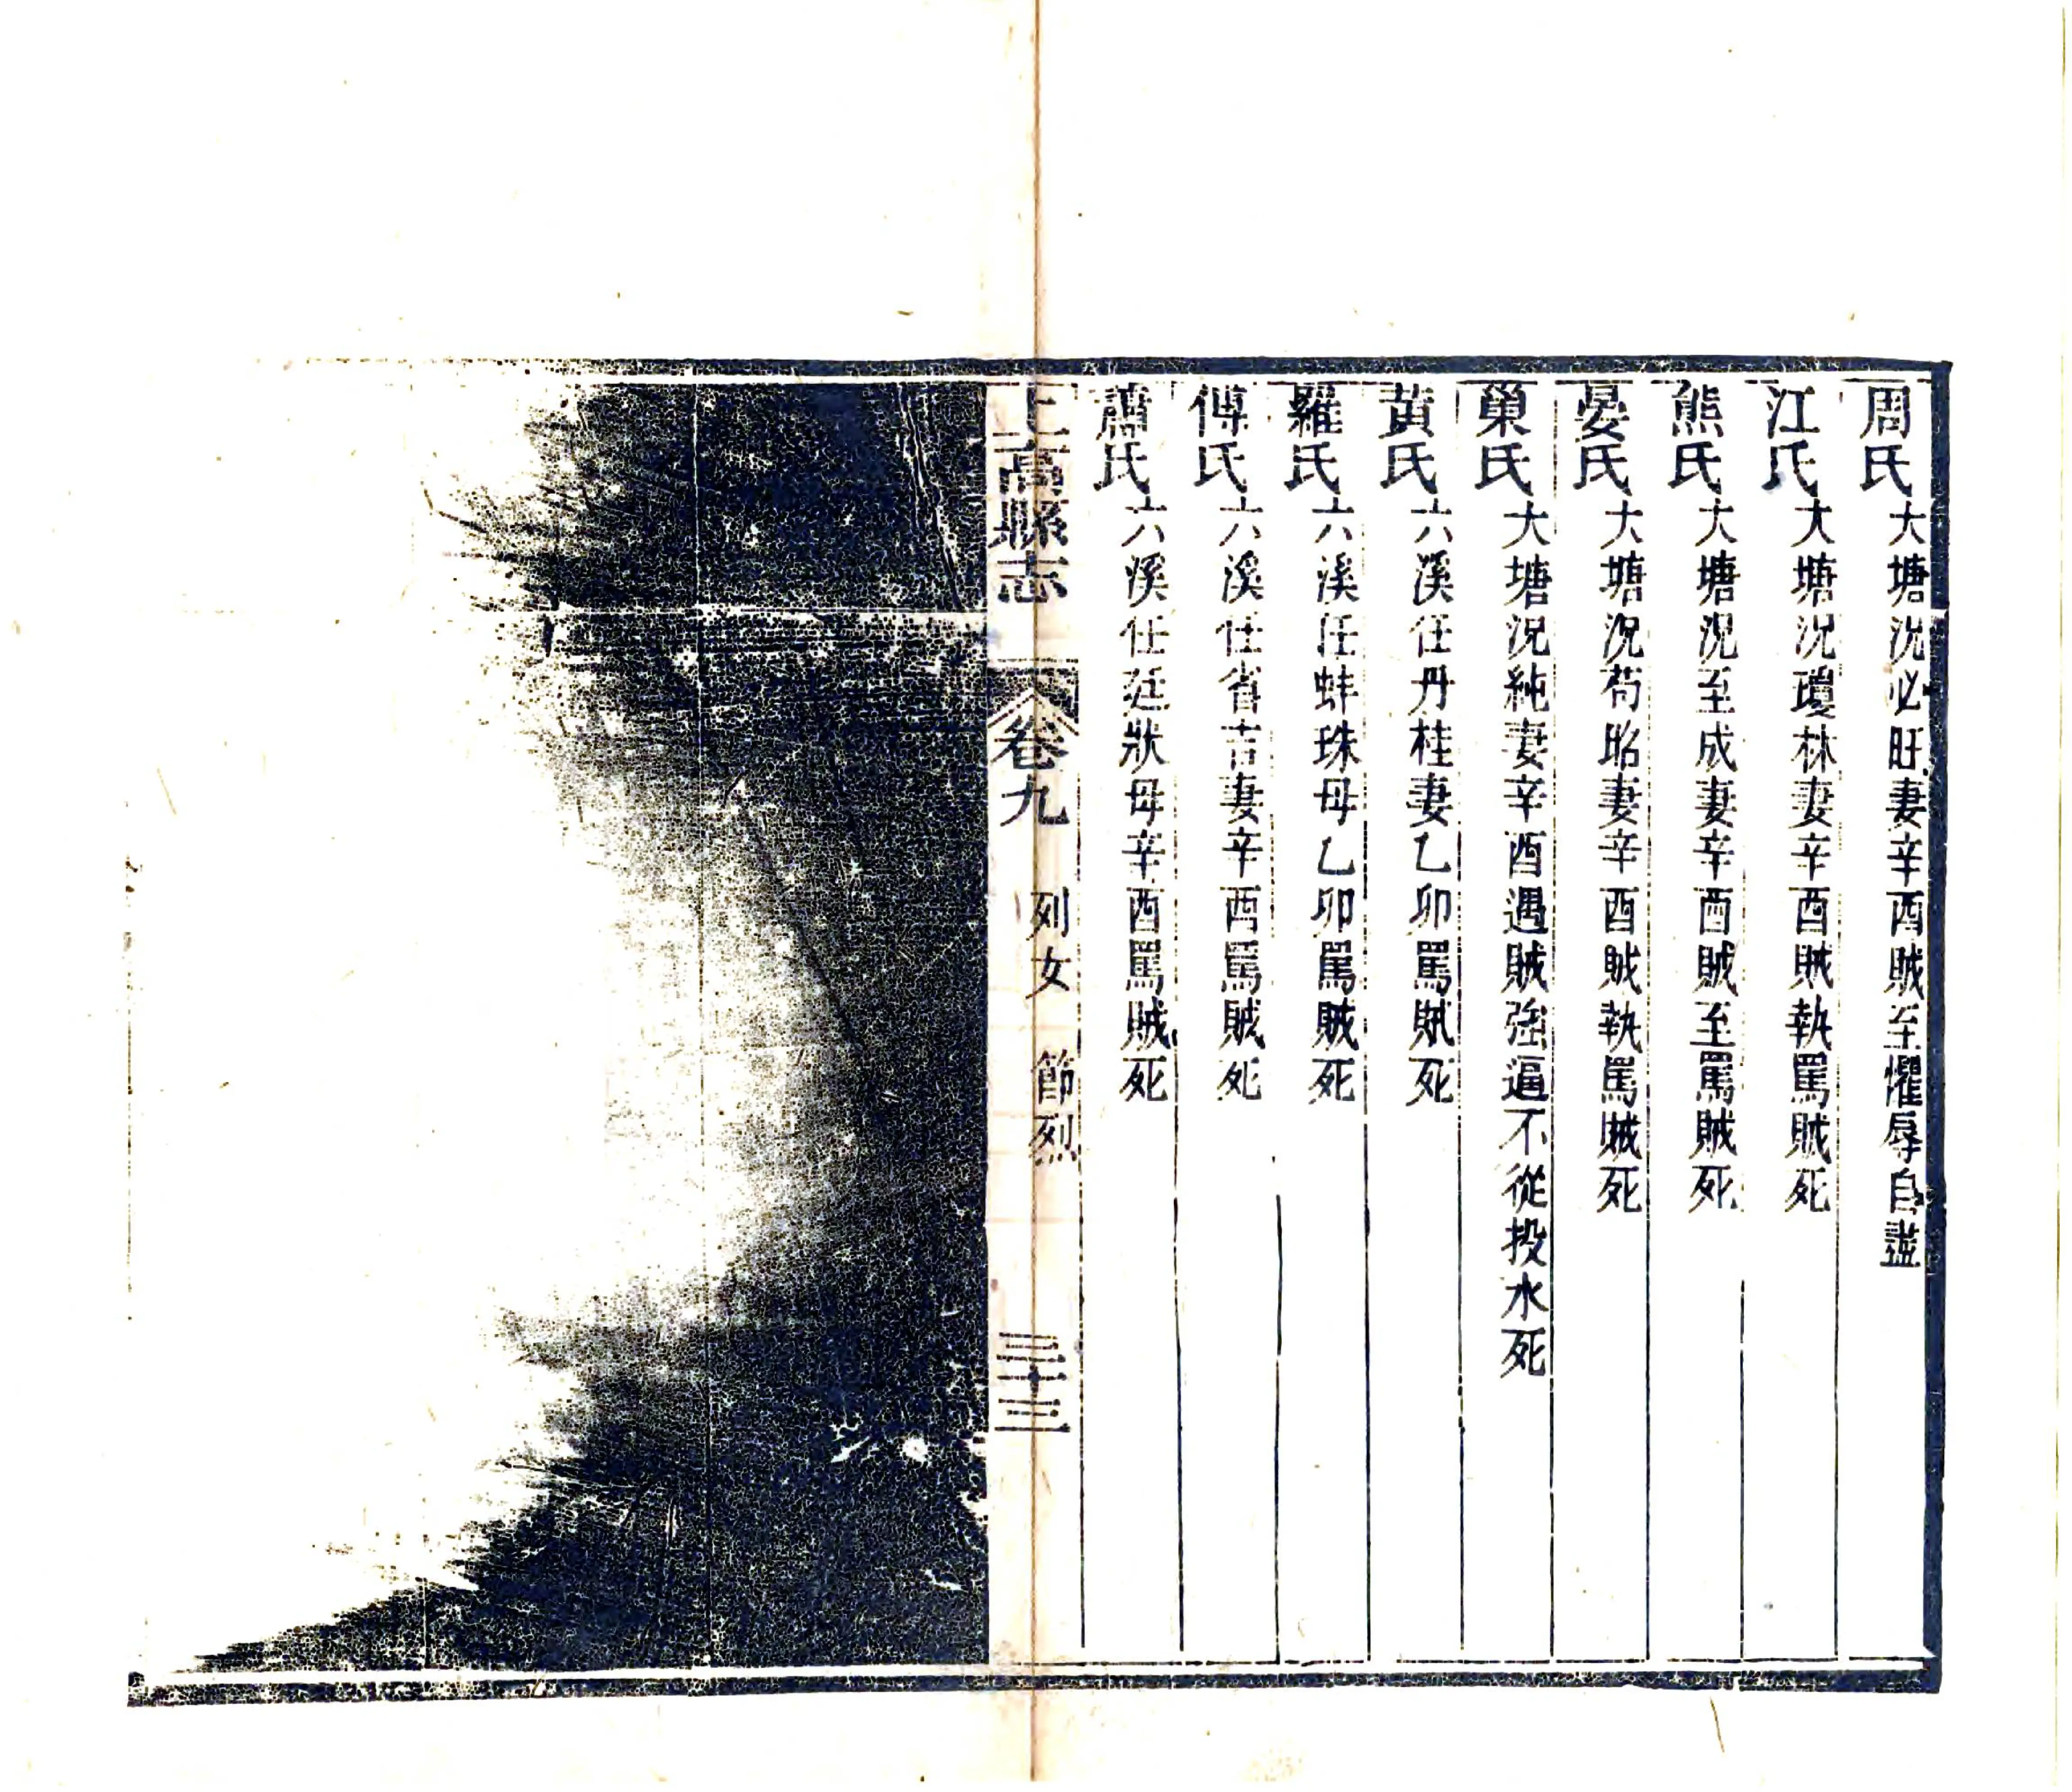 周氏大塘況必旺妻辛酉賊至懼辱自盡
江氏大塘況瓊林妻辛酉賊執罵賊死
熊氏大塘況至成妻辛酉賊至罵賊死
晏氏大塘況苟昭妻辛酉賊執罵賊死
巢氏大塘況純妻辛酉遇賊強逼不從投水死
黃氏六溪任丹桂妻乙卯罵賊死
羅氏六溪任蚌珠母乙卯罵賊死
傅氏六溪任省吉妻辛酉罵賊死
蕭氏六溪任廷狀母辛酉罵賊死
上高縣志 卷九 列女 節烈 三十三